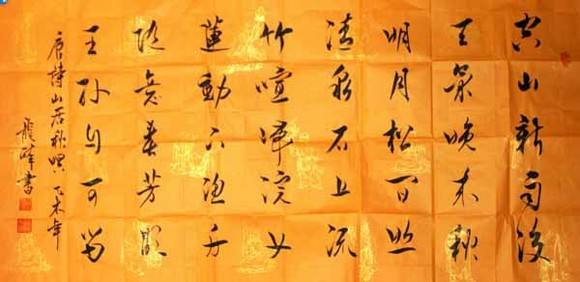 空山新雨後
天氣晚来秋
明月松间照
清泉石上流
竹喧歸浣女
蓮動下渔舟
随意春芳歇
王孙自可留
唐詩山居秋暝 乙未年
龍峰書